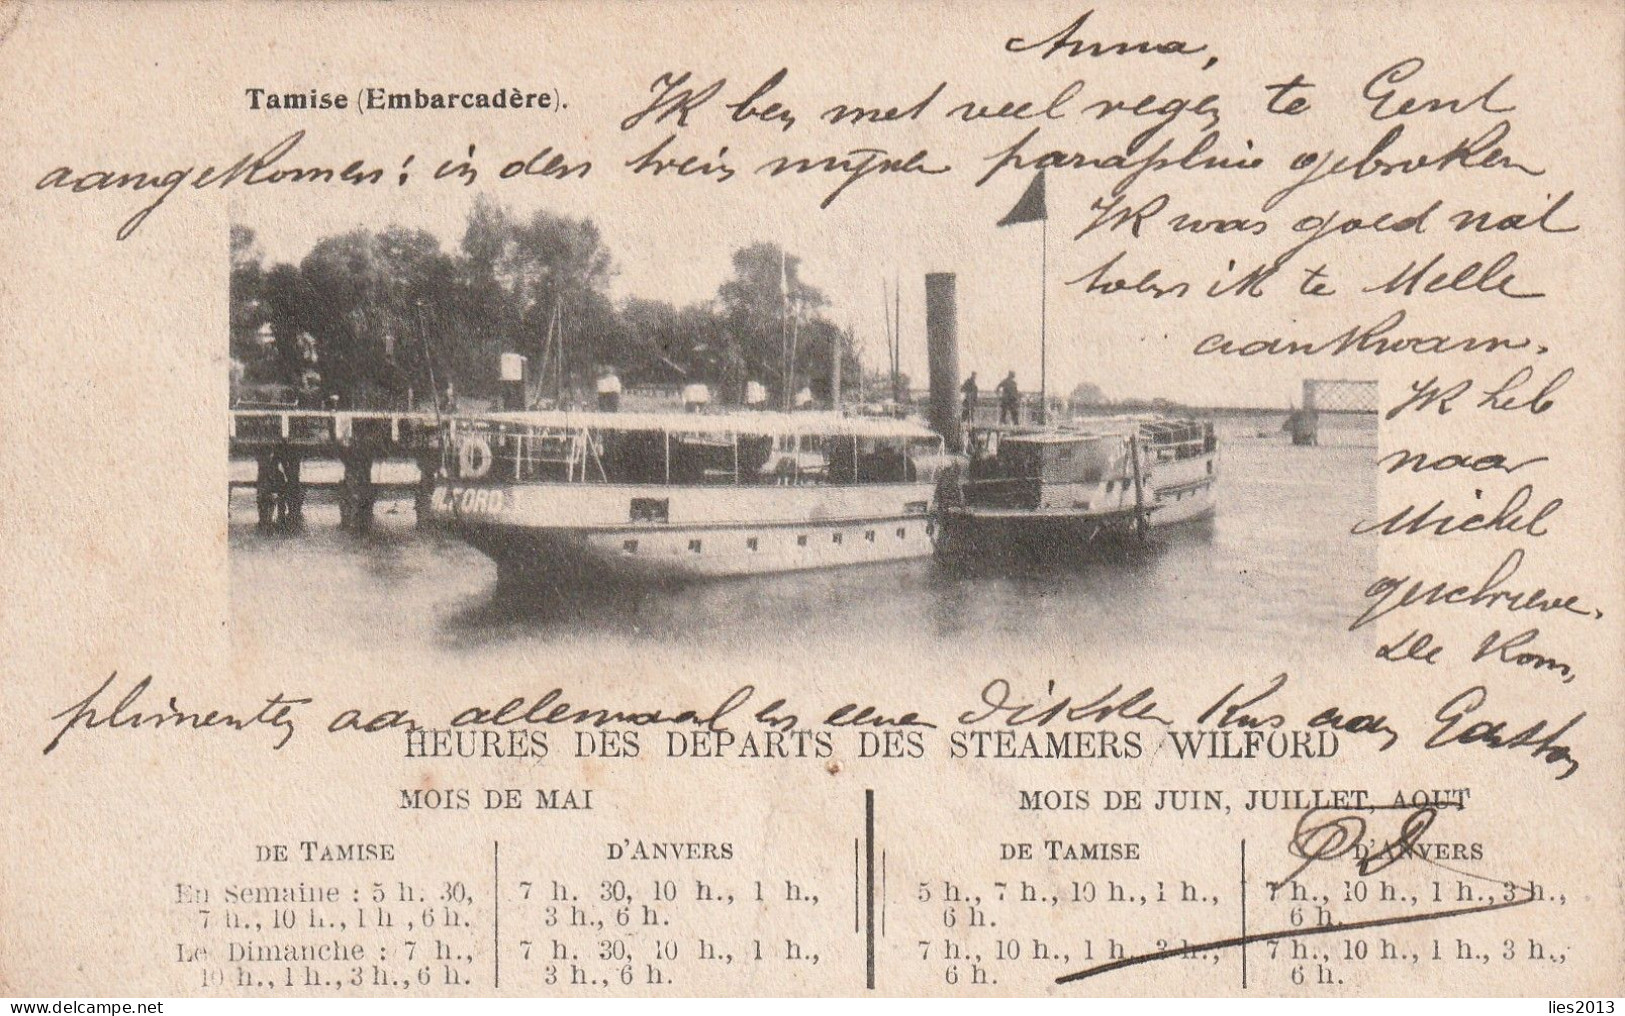 Anna,
Tamise (Embarcadère).
Ik ben met veel regen te Gent
aangekomen; in den trein mijnen parapluie gebroken
Ik was goed nat
toen ik te Melle
aankwam.
Ik heb
naar
Michel
geschreve.
De Kom,
plimenten aan allemaal en eenen dikken Kus aan Gaston
ILFORD
HEURES DES DEPARTS DES STEAMERS WILFORD
MOIS DE MAI
DE TAMISE D'ANVERS
En Semaine : 5 h. 30, 7 h. 30, 10 h., 1 h.,
7 h., 10 h., 1 h , 6 h. 3 h., 6 h.
Le Dimanche : 7 h., 7 h. 30, 10 h., 1 h.,
10 h., 1 h., 3 h., 6 h. 3 h., 6 h.
MOIS DE JUIN, JUILLET, AOUT
DE TAMISE D'ANVERS
5 h., 7 h., 10 h., 1 h., 7 h., 10 h., 1 h., 3 h.,
6 h. 6 h.
7 h., 10 h., 1 h., 3 h., 7 h., 10 h., 1 h., 3 h.,
6 h. 6 h.
lies2013